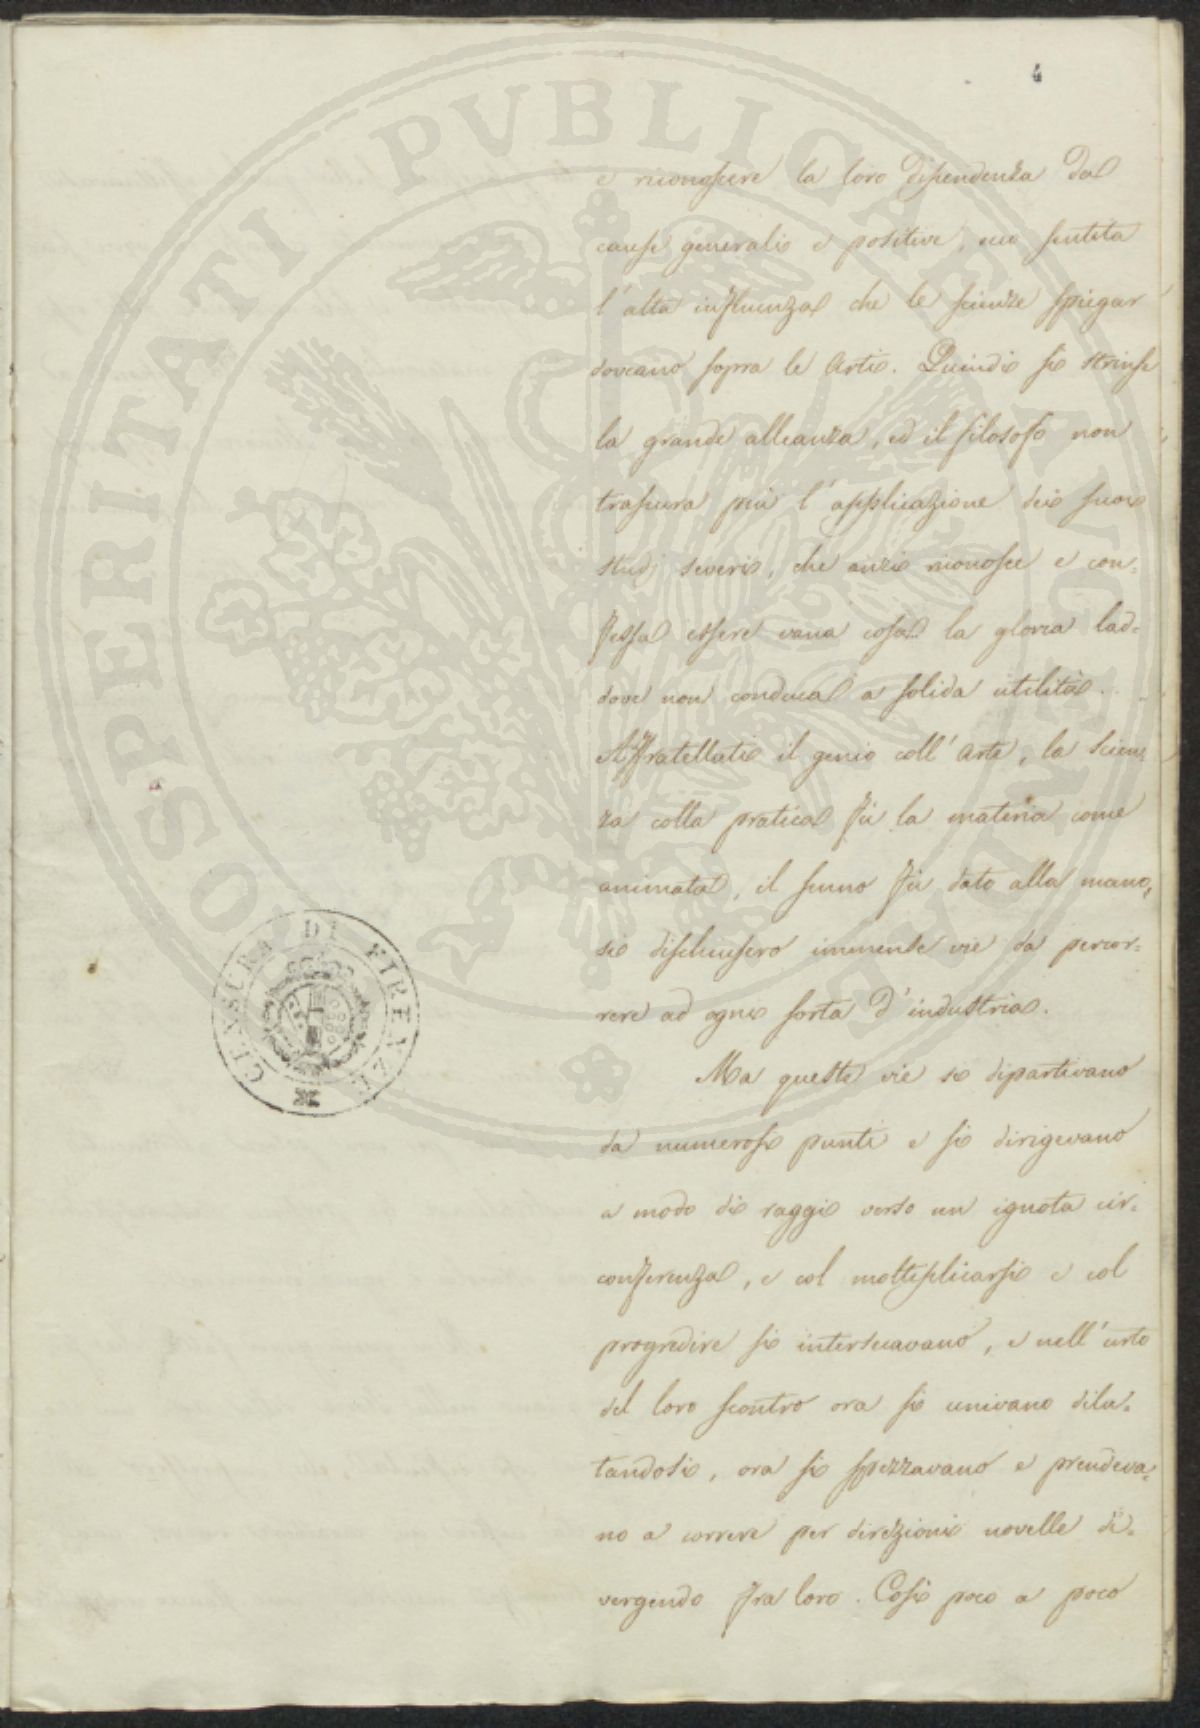 4
e riconoscere la loro dipendenza da
cause generali e positive, ecco sentita
l'alta influenza che le scienze spiegar
doveano sopra le Arti. Quindi si strinse
la grande alleanza, ed il filosofo non
trascura più l'applicazione dei suoi
studj severi, che anzi riconosce e con=
fessa essere vana cosa la gloria lad=
dove non conduca a solida utilità.
Affratellati il genio coll'Arte, la Scien=
za colla pratica fù la materia come
animata, il senno fù dato alla mano,
si dischiusero immense vie da percor=
rere ad ogni sorta d'industria.
Ma queste vie si dipartivano
da numerosi punti e si dirigevano
a modo di raggi verso un ignota cir=
conferenza, e col moltiplicarsi e col
progredire si intersecavano, e nell'urto
del loro scontro ora si univano dila=
tandosi, ora si spezzavano e prendeva=
no a correre per direzioni novelle di=
vergendo fra loro. Così poco a poco
CENSURA DI FIRENZE
PROSPERITATI PVBLICAE AVGENDAE